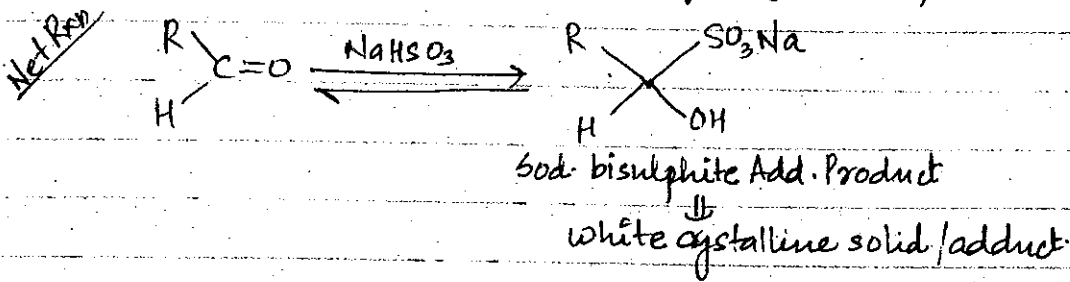 Net Rxn
R
C=O
H
NaHSO3
R
SO3Na
H
OH
Sod. bisulphite Add. Product
⇓
white cystalline solid/adduct.